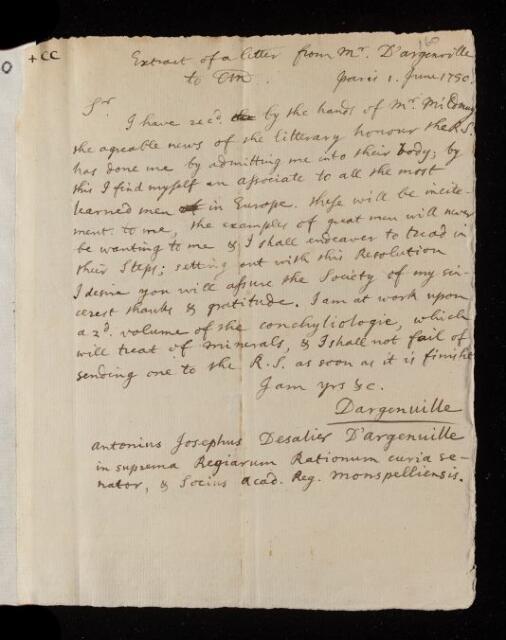 +CC
O
Extract of a letter from Mr. D'argenville
to CM. Paris 1. June 1750.
Sr.
I have recd. by the hands of Mr. Mildmay
the agreable news of the litterary honour the R.S.
has done me by admitting me into their body; by
this I find myself an associate to all the most
learned men in Europe. these will be incite-
ment to me, the examples of great men will never
be wanting to me & I shall endeaver to tread in
their Steps; setting out with this Resolution
I desire you will assure the Society of my sin-
cerest thanks & gratitude. I am at work upon
a 2d. volume of the conchyliologie, which
will treat of minerals, & I shall not fail of
sending one to the R.S. as soon as it is finisht
I am yrs &c.
Dargenville
Antonius Josephus Desalier D'argenville
in suprema Regiarum Rationum curia se-
nator, & Socius Acad. Reg. Monspelliensis.